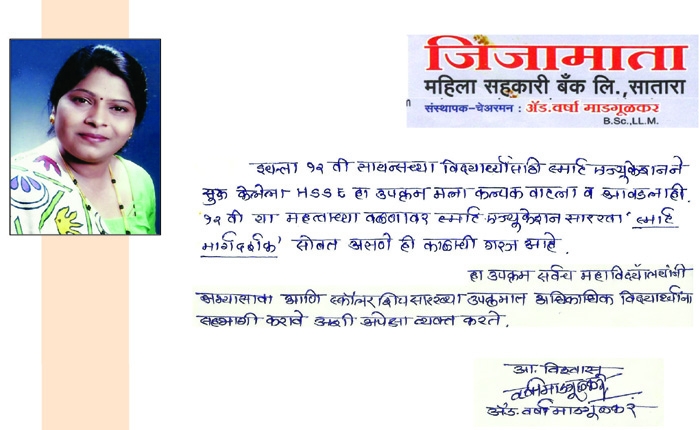 जिजामाता
महिला सहकारी बँक लि., सातारा
संस्थापक-चेअरमन : ॲड.वर्षा माडगूळकर
B.Sc.,LL.M.
इयत्ता १२ वी सायन्सच्या विद्यार्थ्यांसाठी स्मार्ट एज्युकेशनने
सुरू केलेला HSSE हा उपक्रम मला कल्पक वाटला व आवडलाही.
१२ वी या महत्वाच्या वळणावर स्मार्ट एज्युकेशन सारखा 'स्मार्ट
मार्गदर्शक' सोबत असणे ही काळाची गरज आहे.
हा उपक्रम सर्वच महाविद्यालयांनी
अभ्यासावा आणि स्कॉलरशीपसारख्या उपक्रमात अधिकाधिक विद्यार्थ्यांना
सहभागी करावे अशी अपेक्षा व्यक्त करते.
आ. विश्वासू
ॲड. वर्षा माडगूळकर